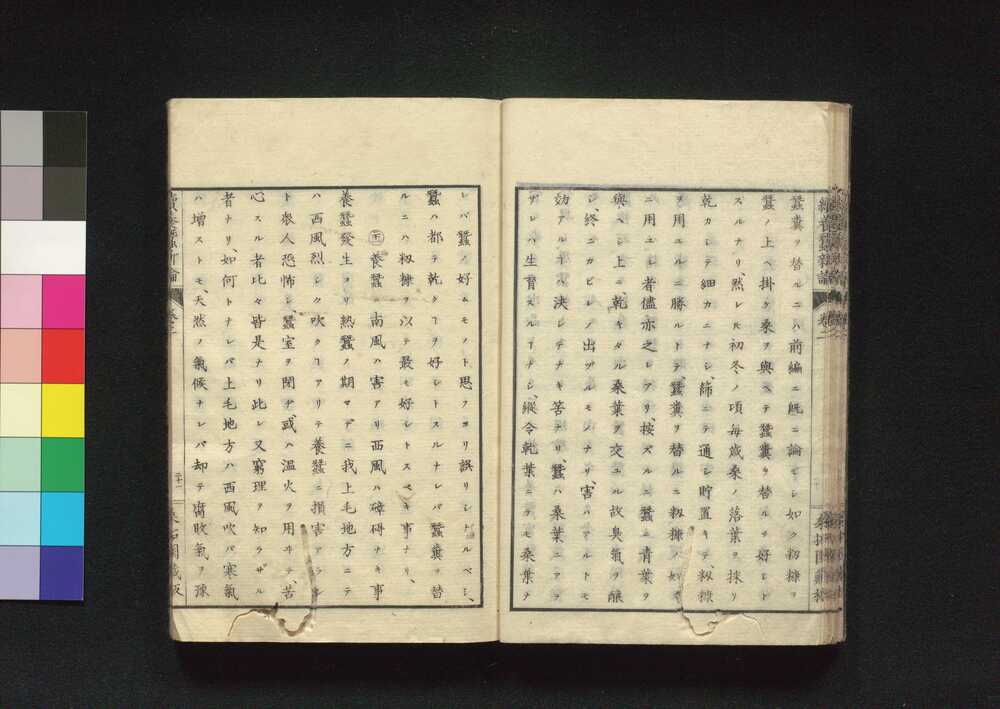 蠶糞ヲ替ルニハ前編ニ既ニ論ゼシ如ク籾糠ヲ
蠶ノ上ヘ掛ケ桑ヲ與ヘテ蠶糞ヲ替ルヲ好シト
スルナリ、然レ𪜈初冬ノ頃毎歳桑ノ落葉ヲ採リ
乾カシテ細カニナシ、篩ニテ通シ貯置キテ、籾糠
ヲ用ユルニ勝ルトテ蠶糞ヲ替ルニ籾糠ノ如ク
ニ用ユル者儘亦之レアリ、按ズルニ蠶ニ青葉ヲ
與ヘシ上ニ、乾キタル桑葉ヲ交ユル故臭氣ヲ醸
シ終ニカビレノ出ヅルモノナリ、害ハアルトモ
効アルヿハ決シテナキ筈ナリ、蠶ハ桑葉ニヲヲ
ザレバ生育スルヿナシ、縱令乾葉ニテモ桑葉ナ
レバ蠶ノ好ムモノト思フヨリ誤リシナルベシ、
蠶ハ都テ乾クヿヲ好シトスルナレバ蠶糞ヲ替
ルニハ籾糠ヲ以テ最モ好シトスベキ事ナリ、
養蠶ニ南風ハ害アリ西風ハ碍碍ナキ事
養蠶發生ヨリ熱蠶ノ期マデニ我上毛地方ニテ
ハ西風烈シク吹クヿアリテ養蠶ニ損害アラン
ト衆人恐怖シ蠶室ヲ閉ヂ、或ハ温火ヲ用ヰテ、苦
心スル者比々皆是ナリ此レ又窮理ヲ知ラザル
者ナリ、如何トナレバ上毛地方ハ西風吹バ寒氣
ハ増ストモ、天然ノ氣候ナレバ却テ腐敗氣ヲ豫